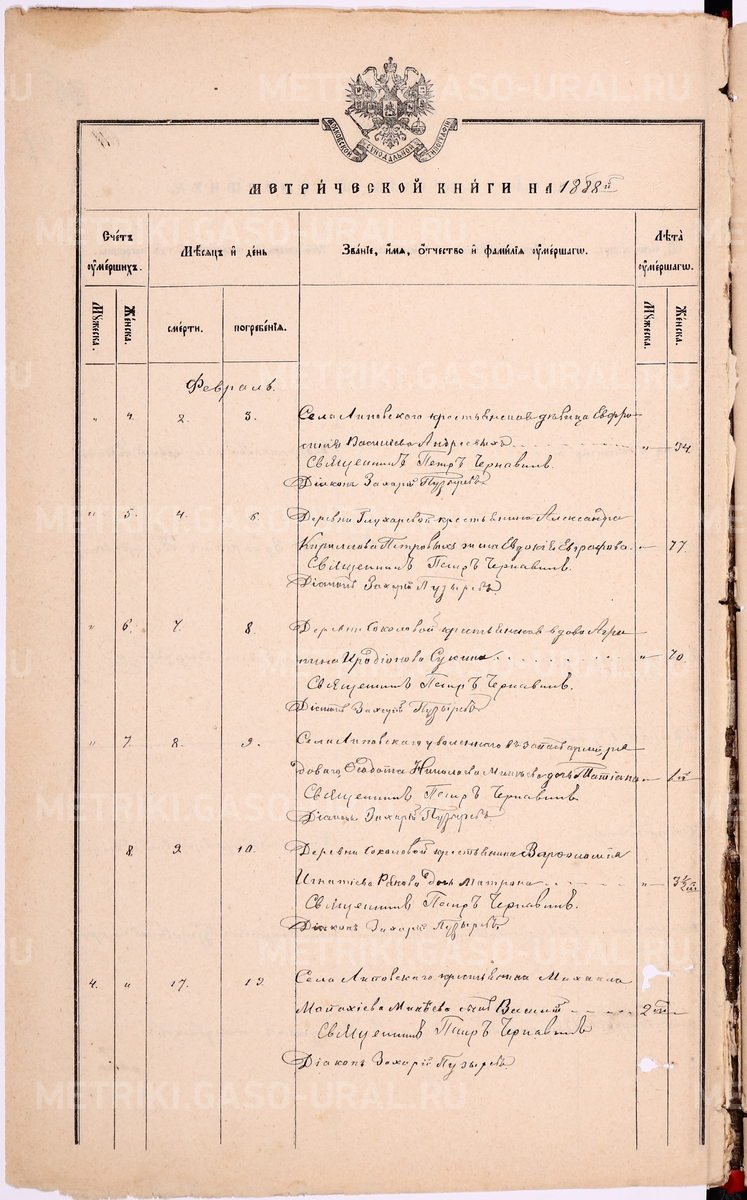 МОСКОВСКОЙ СѴНОДАЛЬНОЙ ТИПОГРАФІИ
МЕТРИ́ЧЕСКОЙ КНИ́ГИ НА 1888й
Сче́тъ ᲂу҆ме́ршихъ.
Мѣ́сяцъ и҆ де́нь
Зва́нїе, и҆́мя, ѻ҆́тчество и҆ фами́лїя ᲂу҆ме́ршагѡ.
Лѣта̀ ᲂу҆ме́ршагѡ.
Мꙋ́жеска.
Же́нска.
сме́рти.
погребе́нїя.
Мꙋ́жеска.
Же́нска.
Февраль.
" 4. 2. 3. Села Липовского крестьянская дѣвица Евфро-
синія Васильева Андреевыхъ " 34.
Священникъ Петръ Чернавинъ.
Діаконъ Захарій Пузыревъ
" 5. 4. 6. Деревни Глухаревой крестьянина Александра
Кириллова Петровыхъ жена Евдокія Евграфова. " 77.
Священникъ Петръ Чернавинъ.
Діаконъ Захарій Пузыревъ.
" 6. 7. 8. Деревни Соколовой крестьянская вдова Агри-
пина Иродіонова Сукина " 70.
Священникъ Петръ Чернавинъ.
Діаконъ Захарій Пузыревъ
" 7. 8. 9. Села Липовского уволенного въ запасъ арміи ря-
доваго Ѳедота Николаева Минѣева дочь Татіана " 1й
Священникъ Петръ Чернавинъ
Діаконъ Захарій Пузыревъ
8. 9. 10. Деревни Соколовой крестьянина Варѳоломея
Игнатіева дочь Матрона " 3½
Священникъ Петръ Чернавинъ.
Діаконъ Захарій Пузыревъ
4. " 17. 19. Села Липовского крестьянина Михаила
Малахіева Минѣева сынъ 2
Священникъ Петръ Чернавинъ
Діаконъ Захарій Пузыревъ.
METRIKI.GASO-URAL.RU